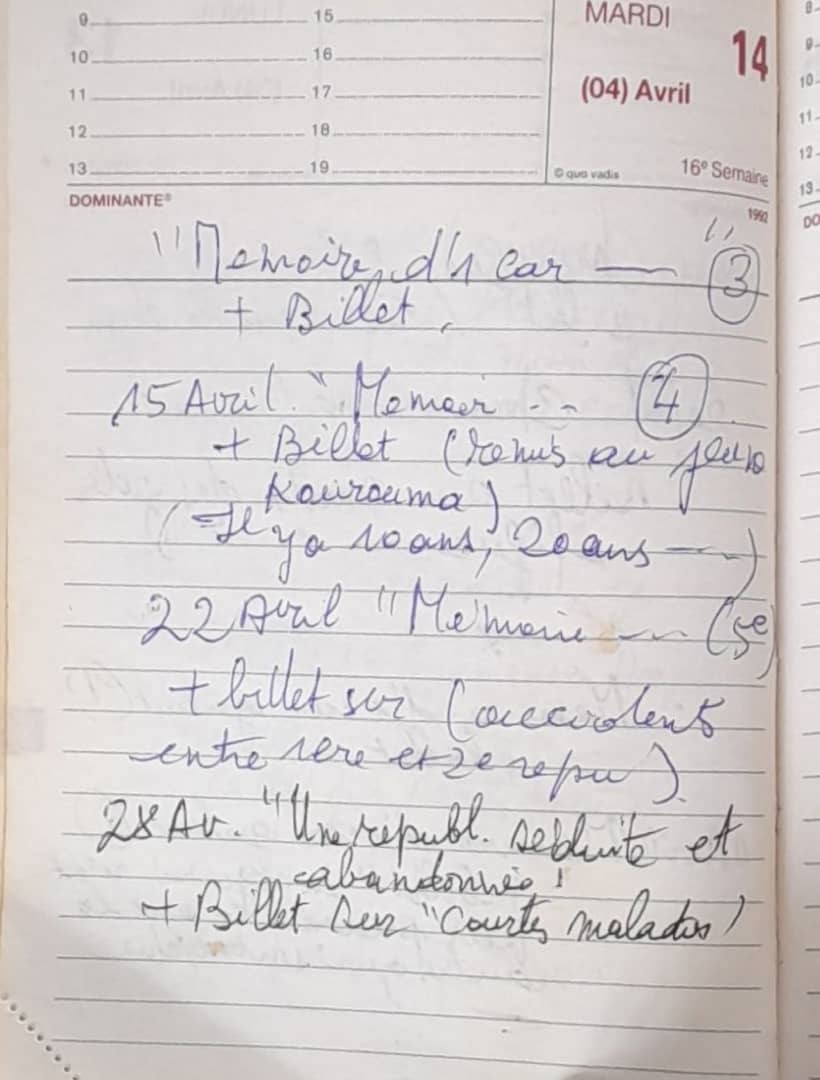 9 15
10 16
11 17
12 18
13 19
MARDI
14
(04) Avril
© quo vadis
16e Semaine
DOMINANTE®
1992
"Memoire d'1 car — " 3
+ Billet.
15 Avril. " Memoir -- 4
+ Billet (remis au
Kourouma)
(Il y a 10 ans, 20 ans —)
22 Avril "Mémoire — (5e)
+ billet sur (
entre 1ere et 2e repu).
28 Av. "Une republ. séduite et
abandonnée !
+ Billet sur "Courtes malades)
8
9
10
11
12
13
DO